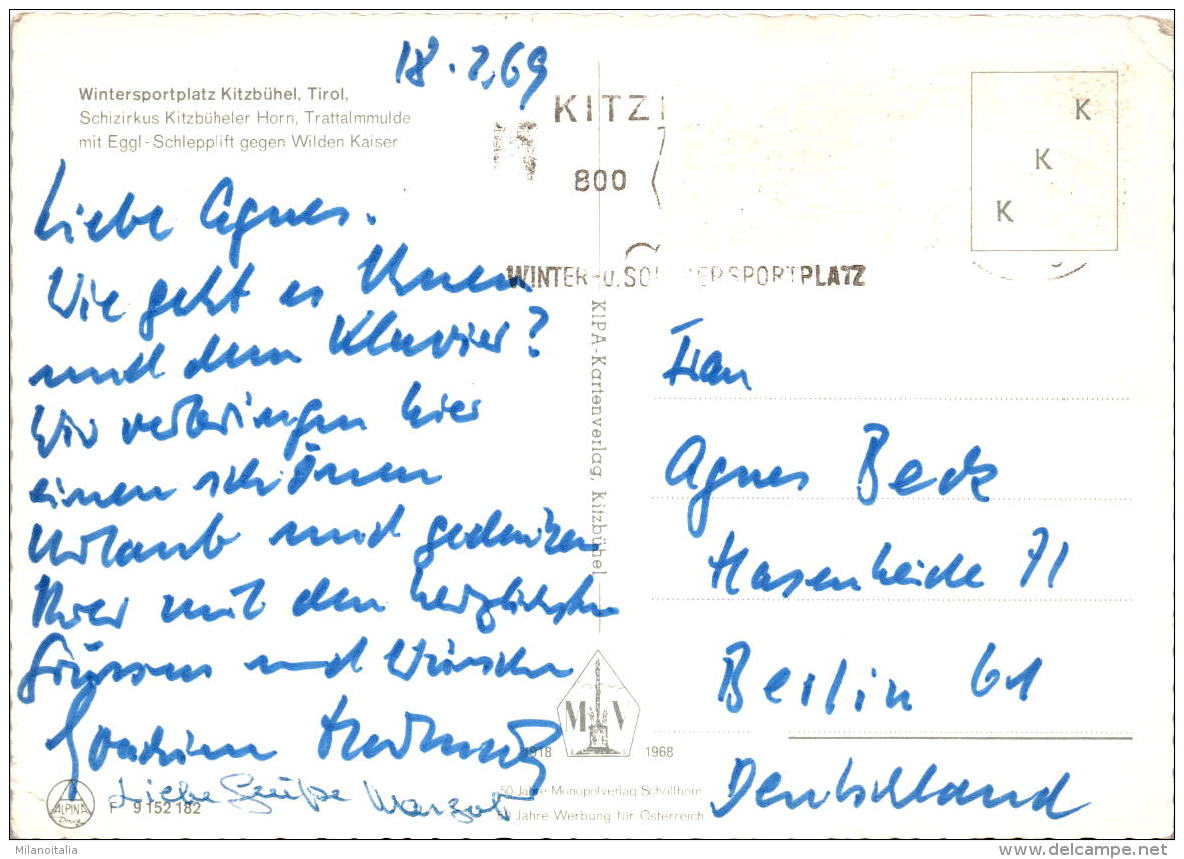 18.2.69
Wintersportplatz Kitzbühel, Tirol,
Schizirkus Kitzbüheler Horn, Trattalmmulde
mit Eggl-Schlepplift gegen Wilden Kaiser
KITZ
800
WINTER- u. SO ERSPORTPLATZ
K
K
K
Liebe Agnes.
Wie geht es Ihnen
und dem Klavier?
Wir verbringen hier
einen schönen
Urlaub und gedenken
Ihrer mit den herzlichsten
Grüssen und Wünschen
Joachim
Liebe Grüße
KIPA-Kartenverlag, Kitzbühel
Frau
Agnes Beck
Hasenheide 71
Berlin 61
Deutschland
M V
1918 1968
50 Jahre Monopolverlag Schöllhorn
50 Jahre Werbung für Österreich
ALPINA
Druck
F 9 152 182
Milanoitalia
delcampe.net